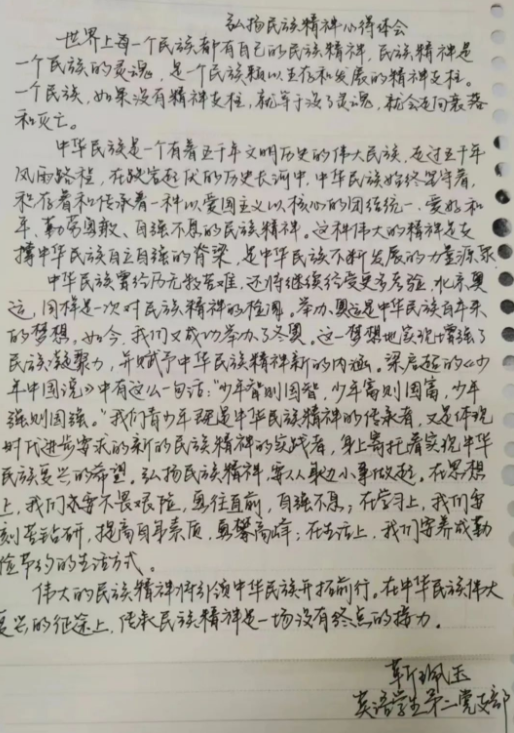 弘扬民族精神心得体会
世界上每一个民族都有自己的民族精神，民族精神是
一个民族的灵魂，是一个民族赖以生存和发展的精神支柱。
一个民族，如果没有精神支柱，就等于没了灵魂，就会走向衰落
和灭亡。
中华民族是一个有着五千年文明历史的伟大民族，走过五千年
风雨路程，在跌宕起伏的历史长河中，中华民族始终坚守着，
积存着和传承着一种以爱国主义以核心的团结统一、爱好和
平、勤劳勇敢、自强不息的民族精神。这种伟大的精神是支
撑中华民族自立自强的脊梁，是中华民族不断发展的力量源泉
中华民族曾经历无数苦难，还将继续经受更多考验，北京奥
运，同样是一次对民族精神的检阅。举办奥运是中华民族百年来
的梦想，如今，我们又成功举办了冬奥。这一梦想地实现增强了
民族凝聚力，并赋予中华民族精神新的内涵。梁启超的《少
年中国说》中有这么一句话：“少年智则国智，少年富则国富，少年
强则国强。”我们青少年既是中华民族精神的传承者，又是体现
时代进步要求的新的民族精神的实践者，身上寄托着实现中华
民族复兴的希望。弘扬民族精神，要从身边小事做起。在思想
上，我们需要不畏艰险，勇往直前，自强不息；在学习上，我们需
刻苦钻研，提高自身素质，勇攀高峰；在生活上，我们需养成勤
俭节约的生活方式。
伟大的民族精神将引领中华民族开拓前行。在中华民族伟大
复兴的征途上，传承民族精神是一场没有终点的接力。
靳珮玉
英语学生第二党支部